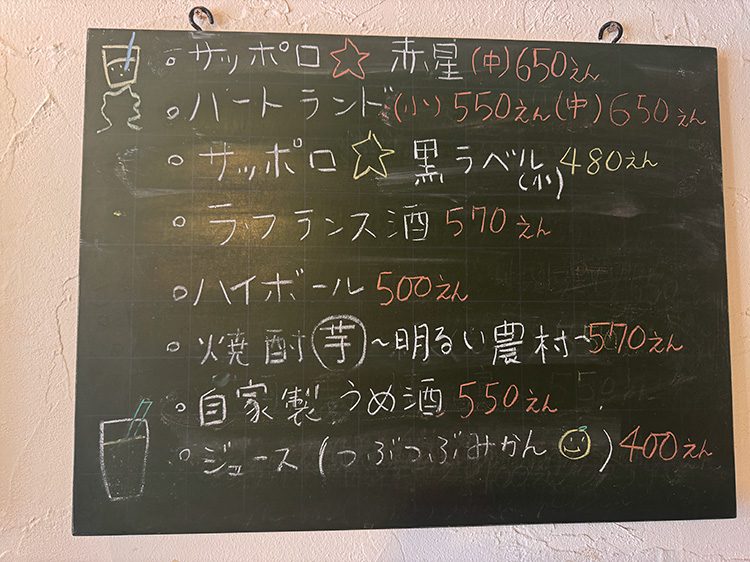 ○サッポロ☆赤星(中)650えん
○ハートランド(小)550えん(中)650えん
○サッポロ☆黒ラベル(小)480えん
○ラ・フランス酒570えん
○ハイボール500えん
○焼酎(芋)~明るい農村~570えん
○自家製うめ酒550えん
○ジュース(つぶつぶみかん)400えん